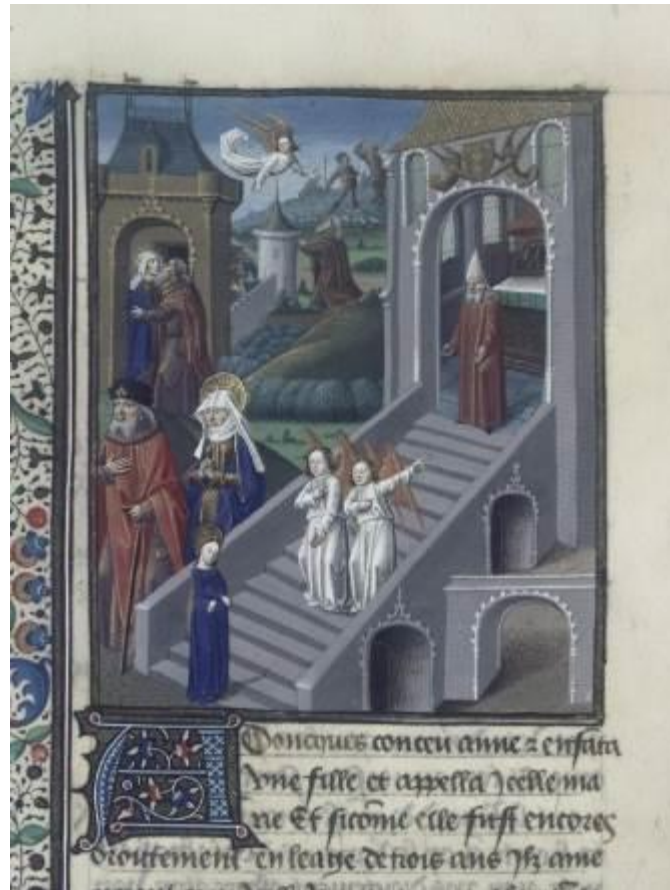 Adoncques conceu anne z enfanta
vne fille et appella jcelle ma
rie Et sicōme elle fust encores
en leage de trois ans jlz